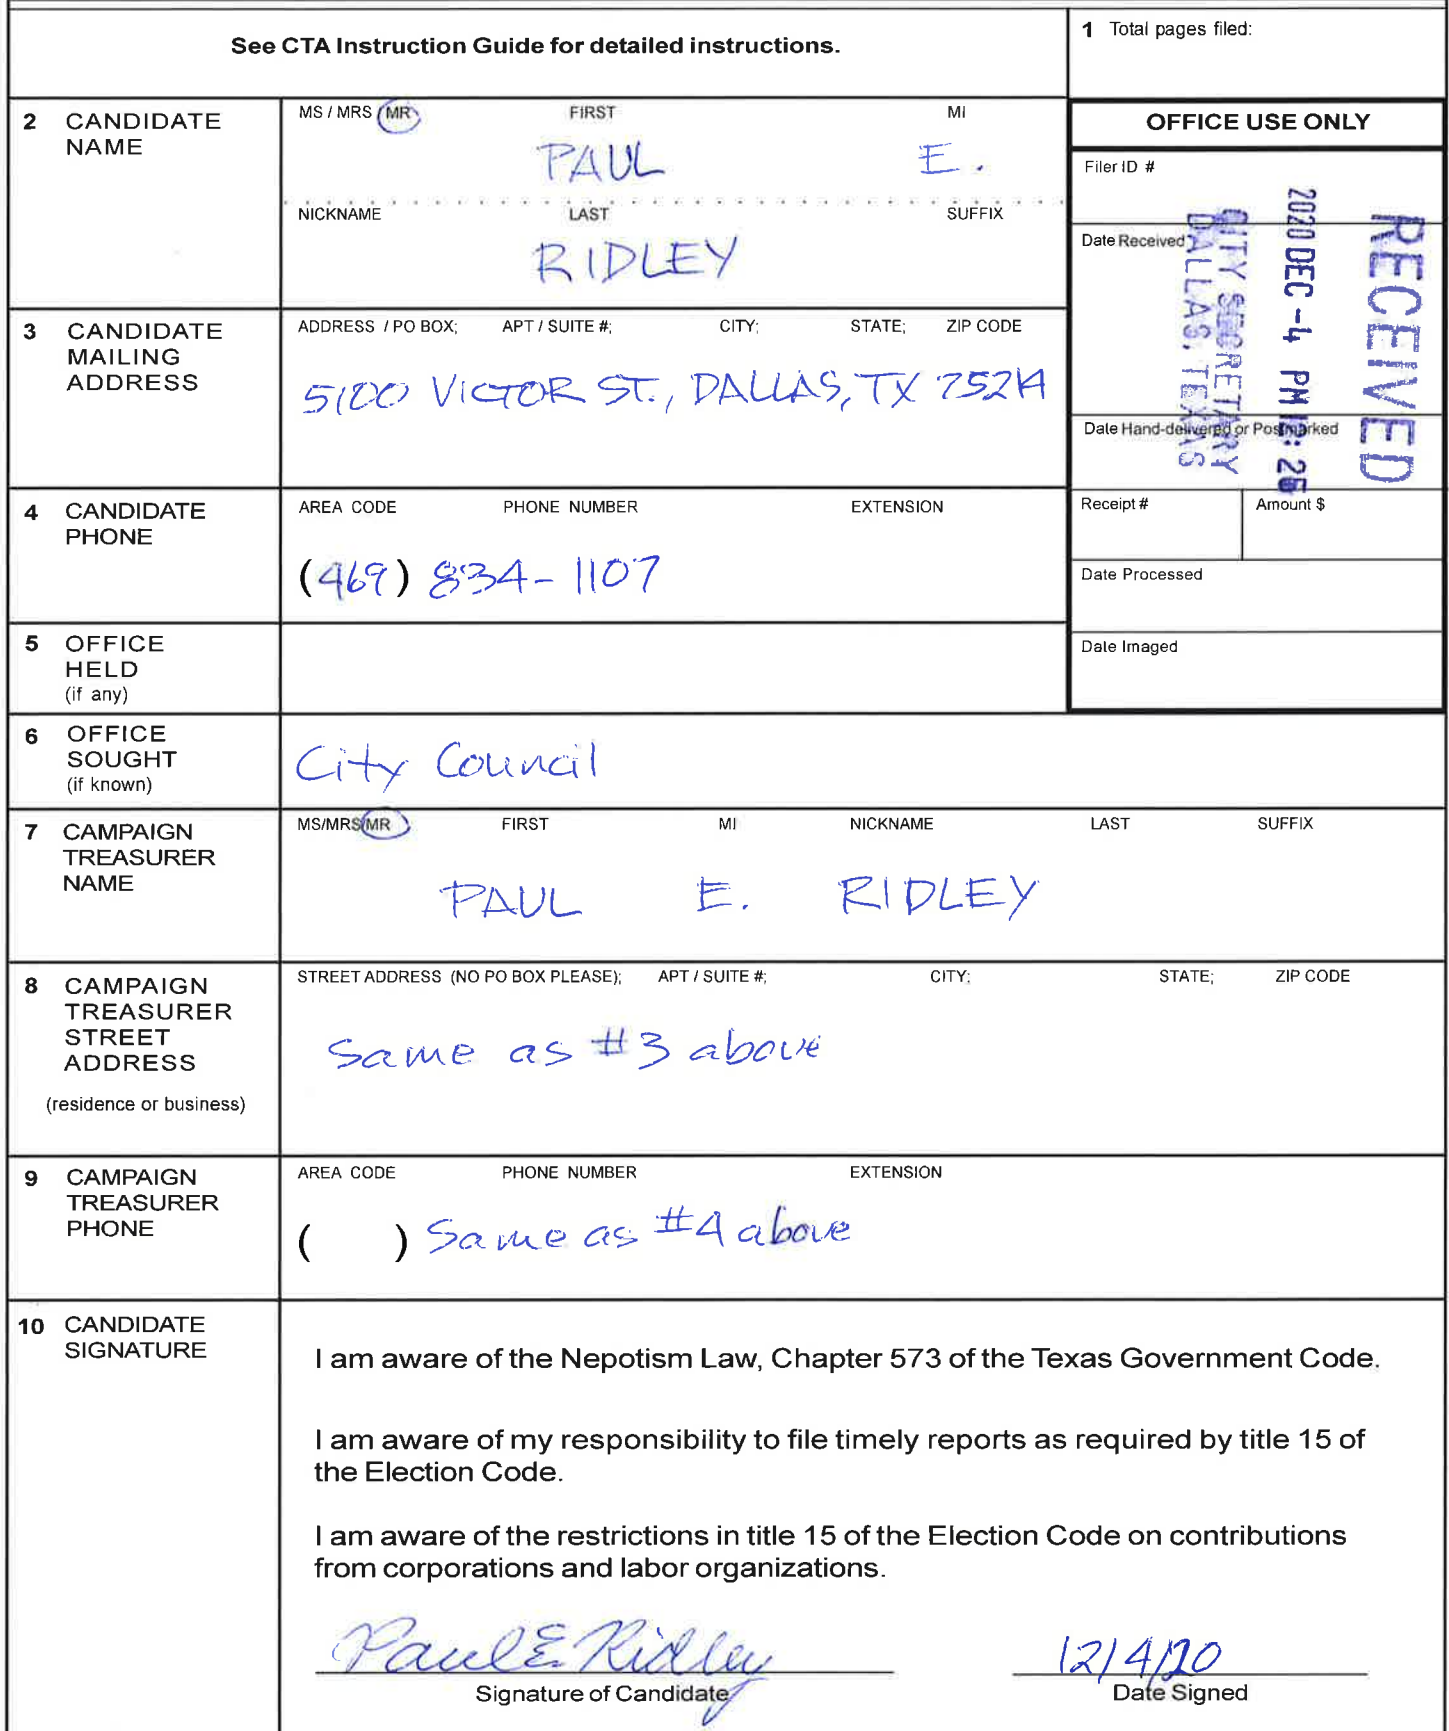 See CTA Instruction Guide for detailed instructions.
1 Total pages filed:
2 CANDIDATE NAME
MS / MRS / MR FIRST MI
PAUL E.
NICKNAME LAST SUFFIX
RIDLEY
OFFICE USE ONLY
Filer ID #
Date Received
RECEIVED
2020 DEC -4 PM 12: 26
CITY SECRETARY
DALLAS, TEXAS
Date Hand-delivered or Postmarked
Receipt # Amount $
Date Processed
Date Imaged
3 CANDIDATE MAILING ADDRESS
ADDRESS / PO BOX; APT / SUITE #; CITY; STATE; ZIP CODE
5100 VICTOR ST., DALLAS, TX 75214
4 CANDIDATE PHONE
AREA CODE PHONE NUMBER EXTENSION
(469) 834-1107
5 OFFICE HELD
(if any)
6 OFFICE SOUGHT
(if known)
City Council
7 CAMPAIGN TREASURER NAME
MS/MRS/MR FIRST MI NICKNAME LAST SUFFIX
PAUL E. RIDLEY
8 CAMPAIGN TREASURER STREET ADDRESS
(residence or business)
STREET ADDRESS (NO PO BOX PLEASE); APT / SUITE #; CITY; STATE; ZIP CODE
Same as #3 above
9 CAMPAIGN TREASURER PHONE
AREA CODE PHONE NUMBER EXTENSION
( ) Same as #4 above
10 CANDIDATE SIGNATURE
I am aware of the Nepotism Law, Chapter 573 of the Texas Government Code.
I am aware of my responsibility to file timely reports as required by title 15 of
the Election Code.
I am aware of the restrictions in title 15 of the Election Code on contributions
from corporations and labor organizations.
Paul E Ridley 12/4/20
Signature of Candidate Date Signed